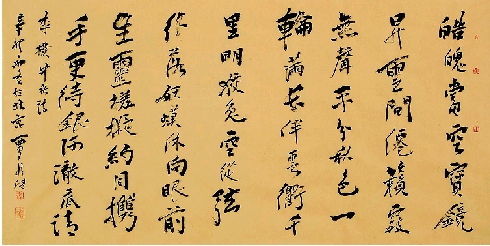 皓魄當空寶鏡
昇雲間僊籟寂
無聲平分秋色一
輪滿長伴雲衢千
里明狡兔空從弦
外落妖蟆休向眼前
生靈槎擬約同攜
手更待銀河澈底清
李樸中秋詩
辛卯